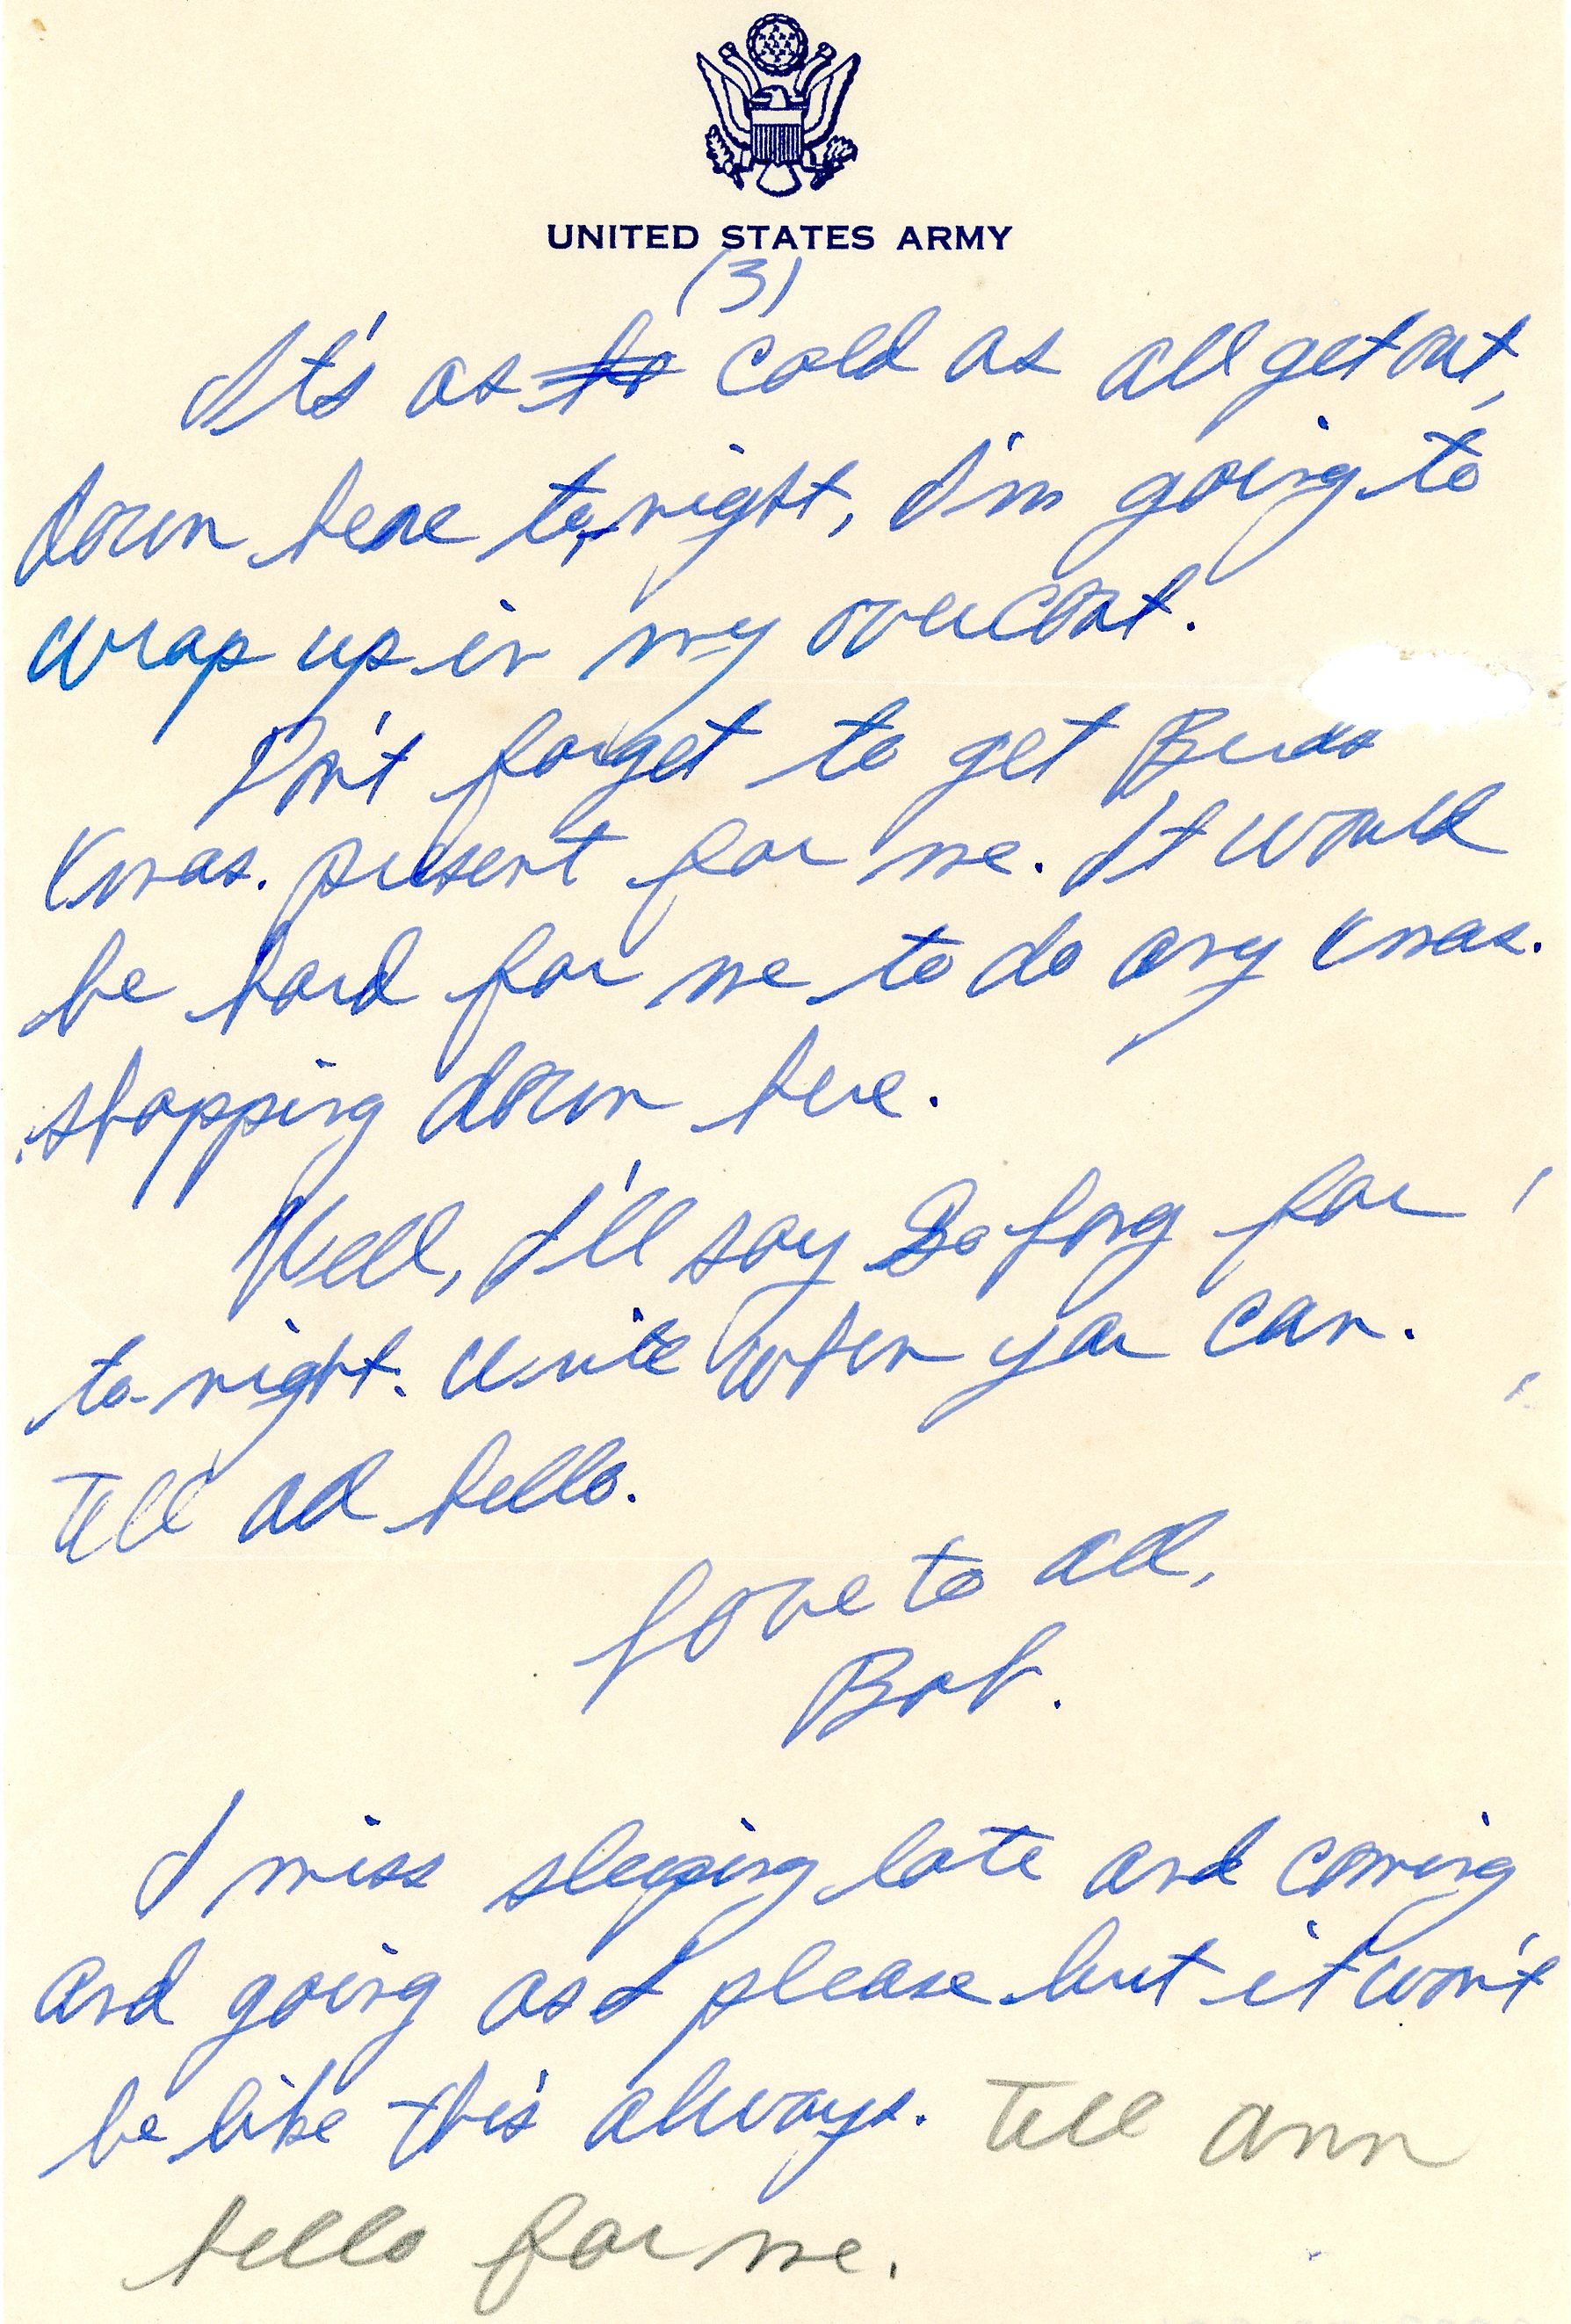 UNITED STATES ARMY
(3)
It's as to cold as all get out,
down here to-night, I'm going to
wrap up in my overcoat.
Don't forget to get Buds
Xmas. present for me. It would
be hard for me to do any Xmas.
shopping down here.
Well, I'll say So long for
to-night. Write when you can.
Tell all hello.
Love to all,
Bob.
I miss sleeping late and coming
and going as I please but it won't
be like this always. Tell Ann
hello for me.